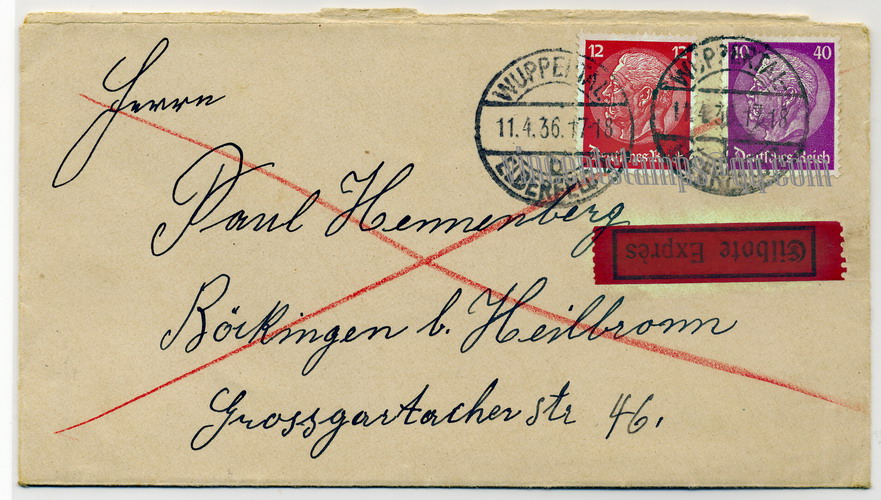 12 12
40 40
Deutsches Reich
Deutsches Reich
WUPPERTAL
11.4.36.17-18
b
ELBERFELD
WUPPERTAL
11.4.3 17-18
Eilbote Exprès
Herrn
Paul Hennenberg
Böckingen b. Heilbronn
Grossgartacherstr 46.